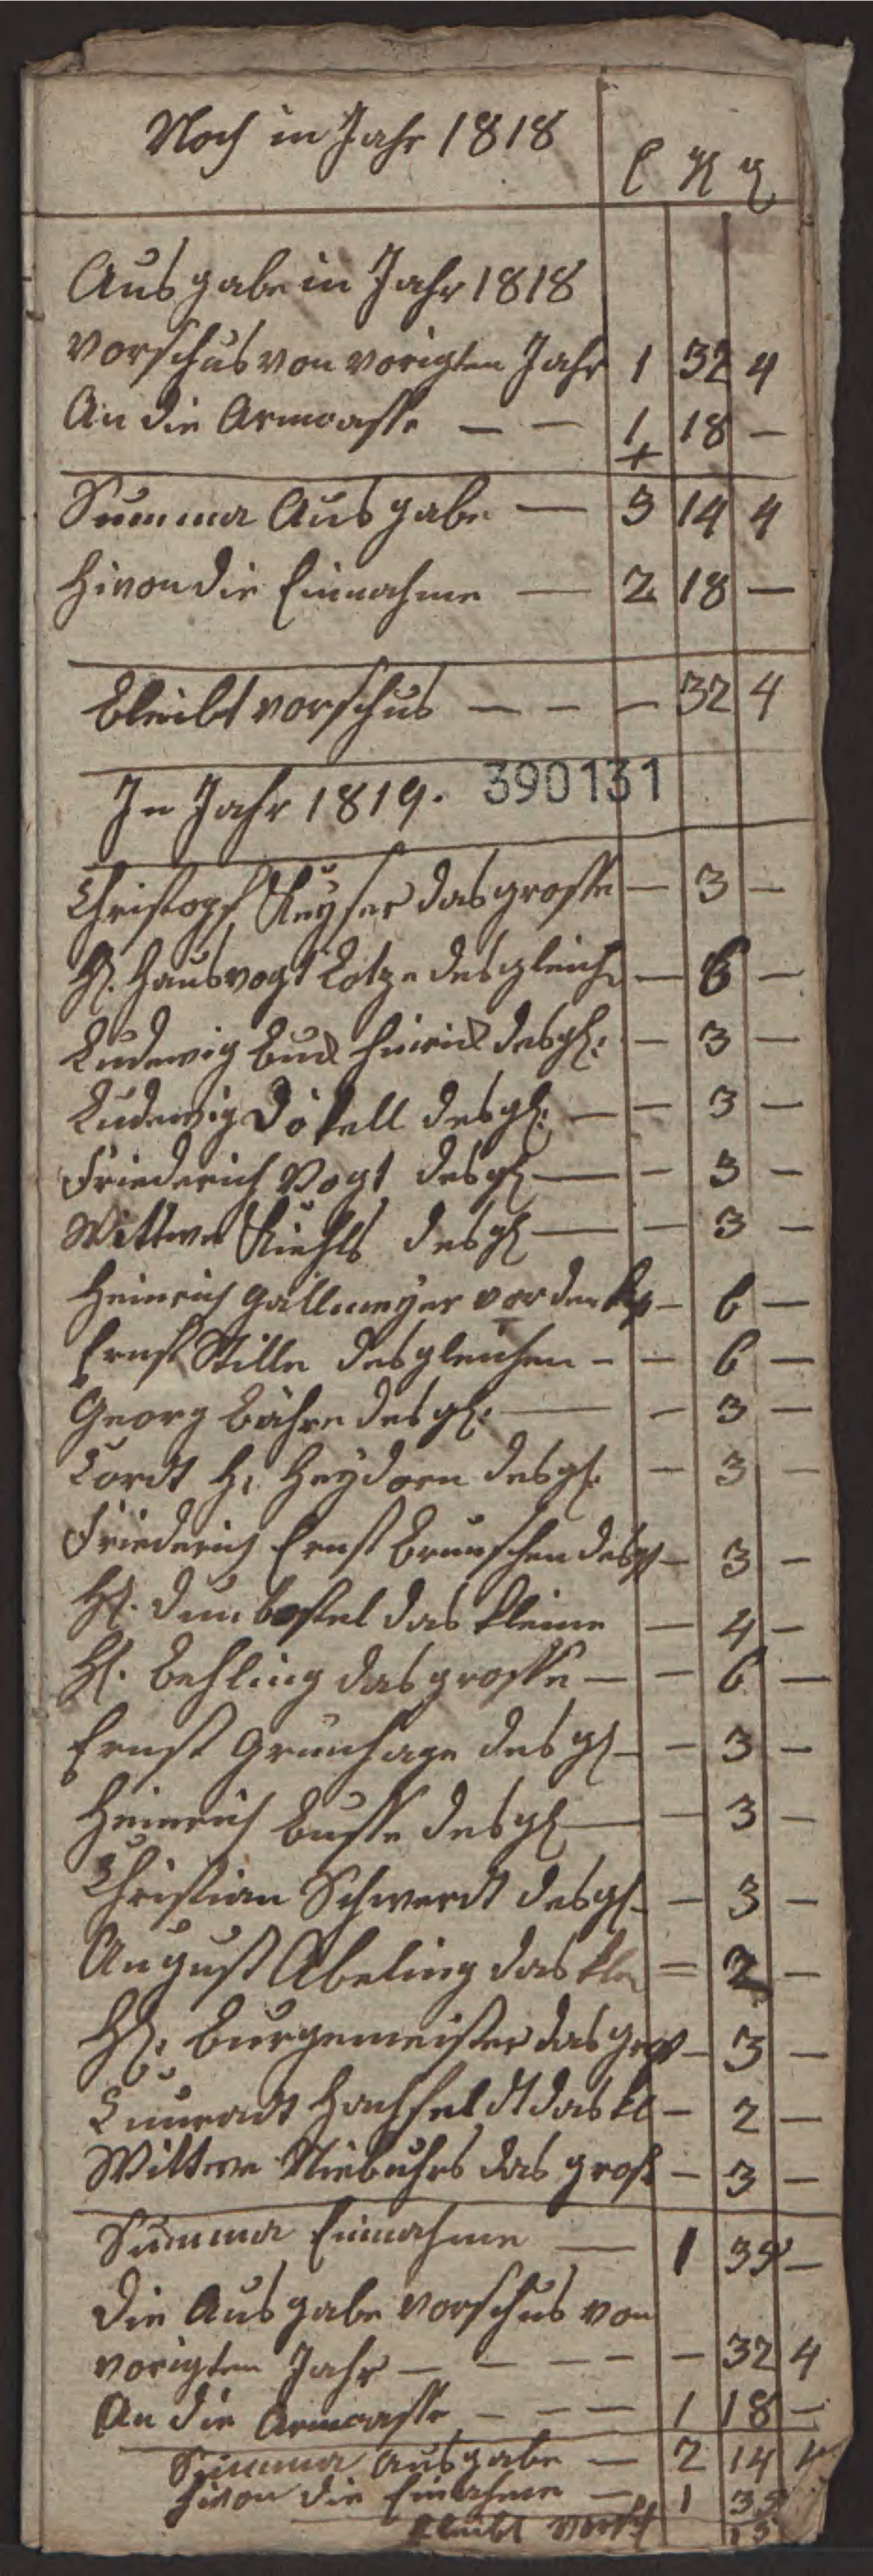 Noch in Jahr 1818
Ausgabe in Jahr 1818
vorschus von vorigten Jahr 1 32 4
An die Armcasse — — 1 18 —
Summa Ausgabe — 3 14 4
Hivon die Einnahme — 2 18 —
bleibt vorschus — — — 32 4
In Jahr 1819. 390131
Christoph Keyser das grosse — 3 —
H. Hausvogt Lotze desgleich — 6 —
Ludewig Hinrich desgl: — 3 —
Ludewig Dökell desgl: — — 3 —
Friederich Vogt desgl — — 3 —
Wittwe Kiehls desgl — — 3 —
Heinrich Gallmeyer vor den — 6 —
Ernst Stille desgleichen — — 6 —
Georg Bähre desgl: — — 3 —
Cordt H. Heydorn desgl. — 3 —
Friederich Ernst Brunschen desgl — 3 —
H. Dunbostel das kleine — 4 —
H. Behling das grosse — — 6 —
Ernst Grünhage desgl — — 3 —
Heinrich Busse desgl — — 3 —
Christian Schwerdt desgl — — 3 —
August Abeling das kle = 2 —
H. Burgemeister das gros — 3 —
Cunradt Hachfeldt das kl — 2 —
Wittwe Niebuhrs das groß — 3 —
Summa Einnahme — 1 35 —
Die Ausgabe vorschus von
vorigten Jahr — — — — — 32 4
An die Armcasse — — — 1 18 —
Summa Ausgabe — 2 14 4
Hivon die Einahme — 1 35
bleibt vorsch 15